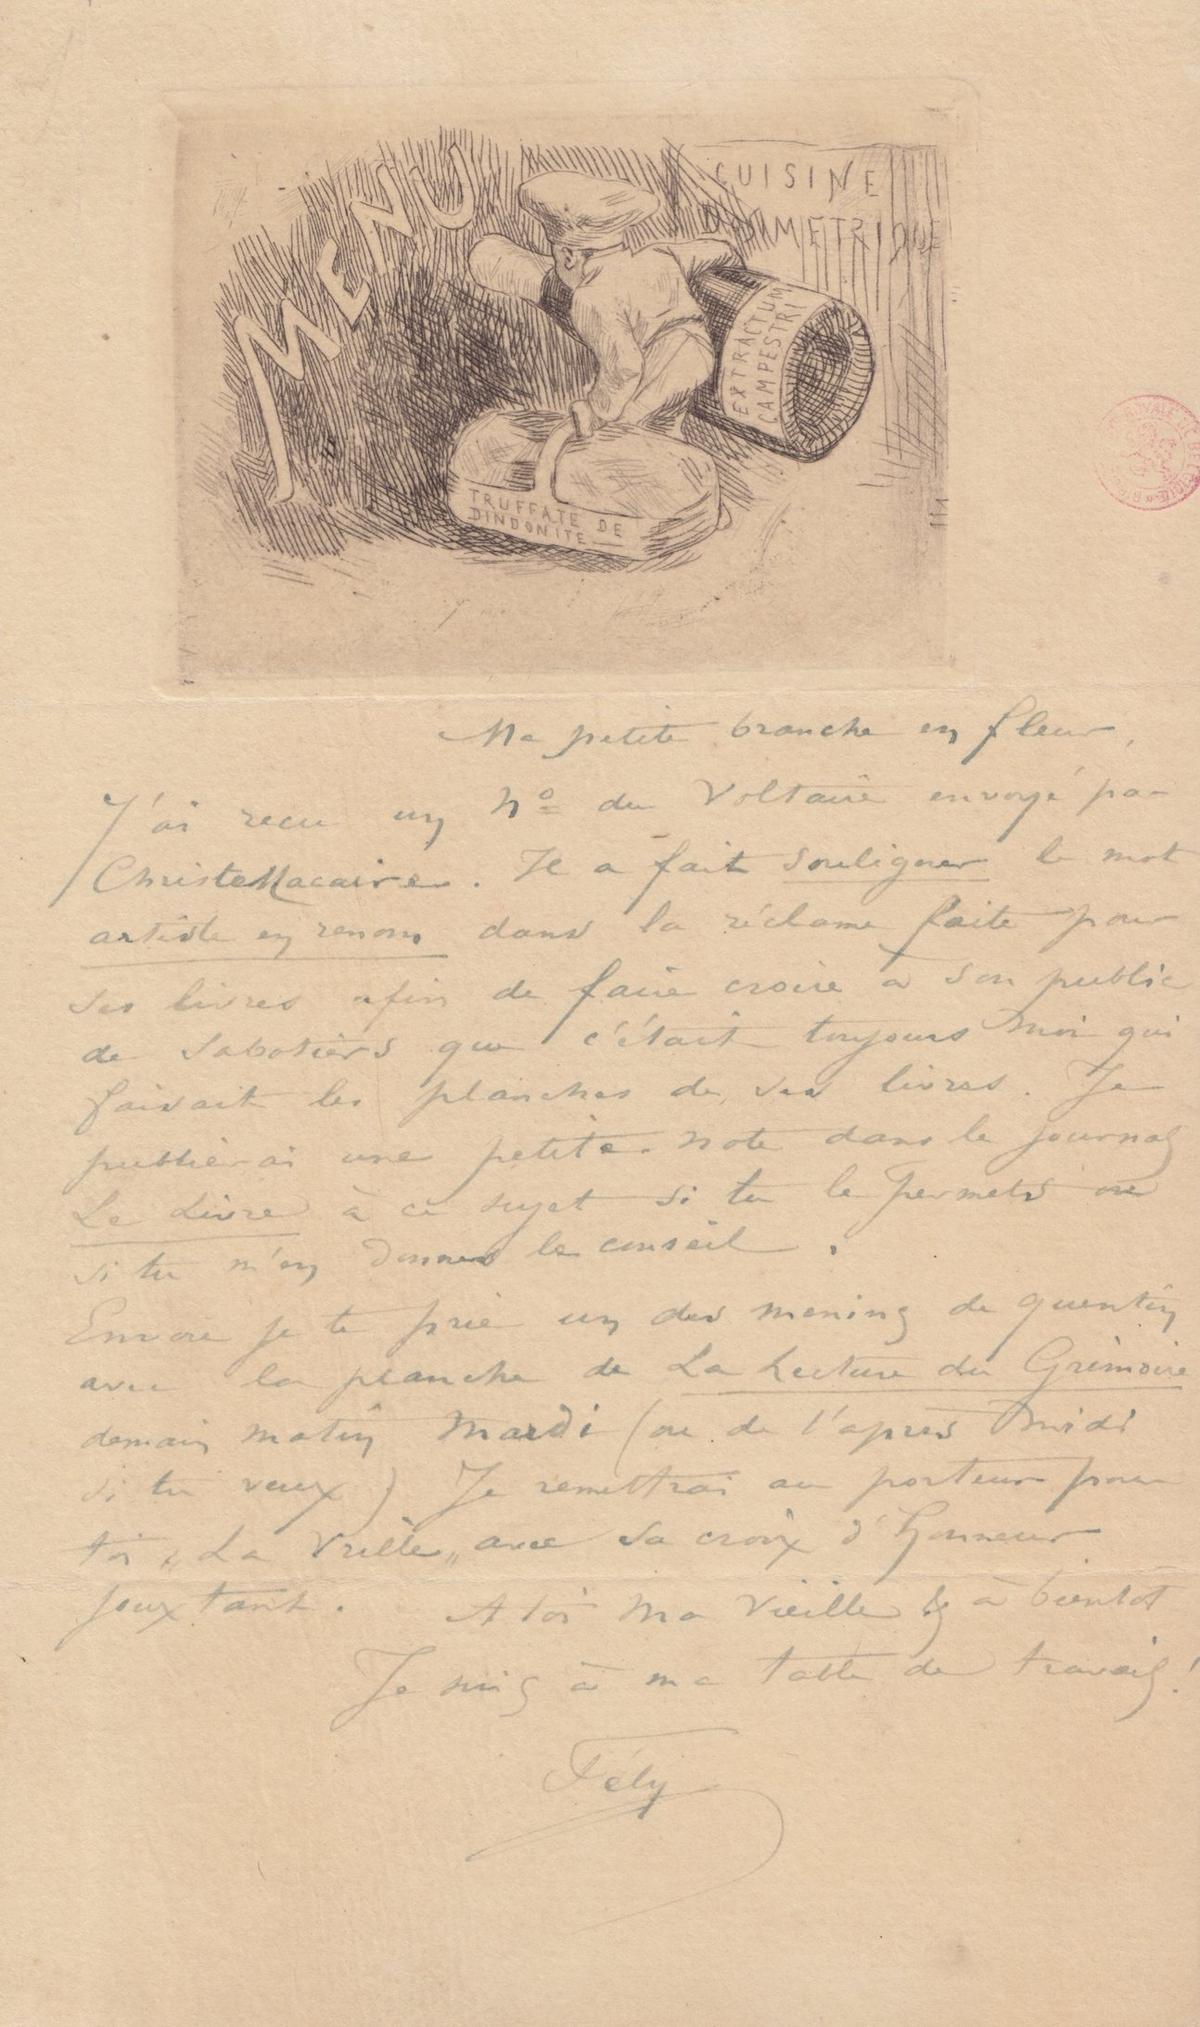 MENU
CUISINE
DOSIMETRIQUE
EXTRACTUM
CAMPESTRI
TRUFFATE DE
DINDONITE
Ma petite branche en fleur,
J'ai recu un No du Voltaire envoyé par
Christe Macaire. Il a fait souligner le mot
artiste en renom dans la réclame faite pour
ses livres afin de faire croire a son public
de Sabotiers que c'était toujours moi qui
faisait les planches de ses livres. Je
publierai une petite note dans le journal
Le Livre à ce sujet si tu le permets ou
si tu m'en donnes le conseil.
Envoie je te prie un des mening de quentin
avec la planche de La Lecture du Grimoire
demain matin Mardi (ou de l'après Midi
si tu veux) Je remettrai au porteur pour
toi „La Vrille„ avec sa croix d'Honneur
jouxtant. A toi Ma Vieille & à bientôt
Je suis à ma table de travail!
Fély